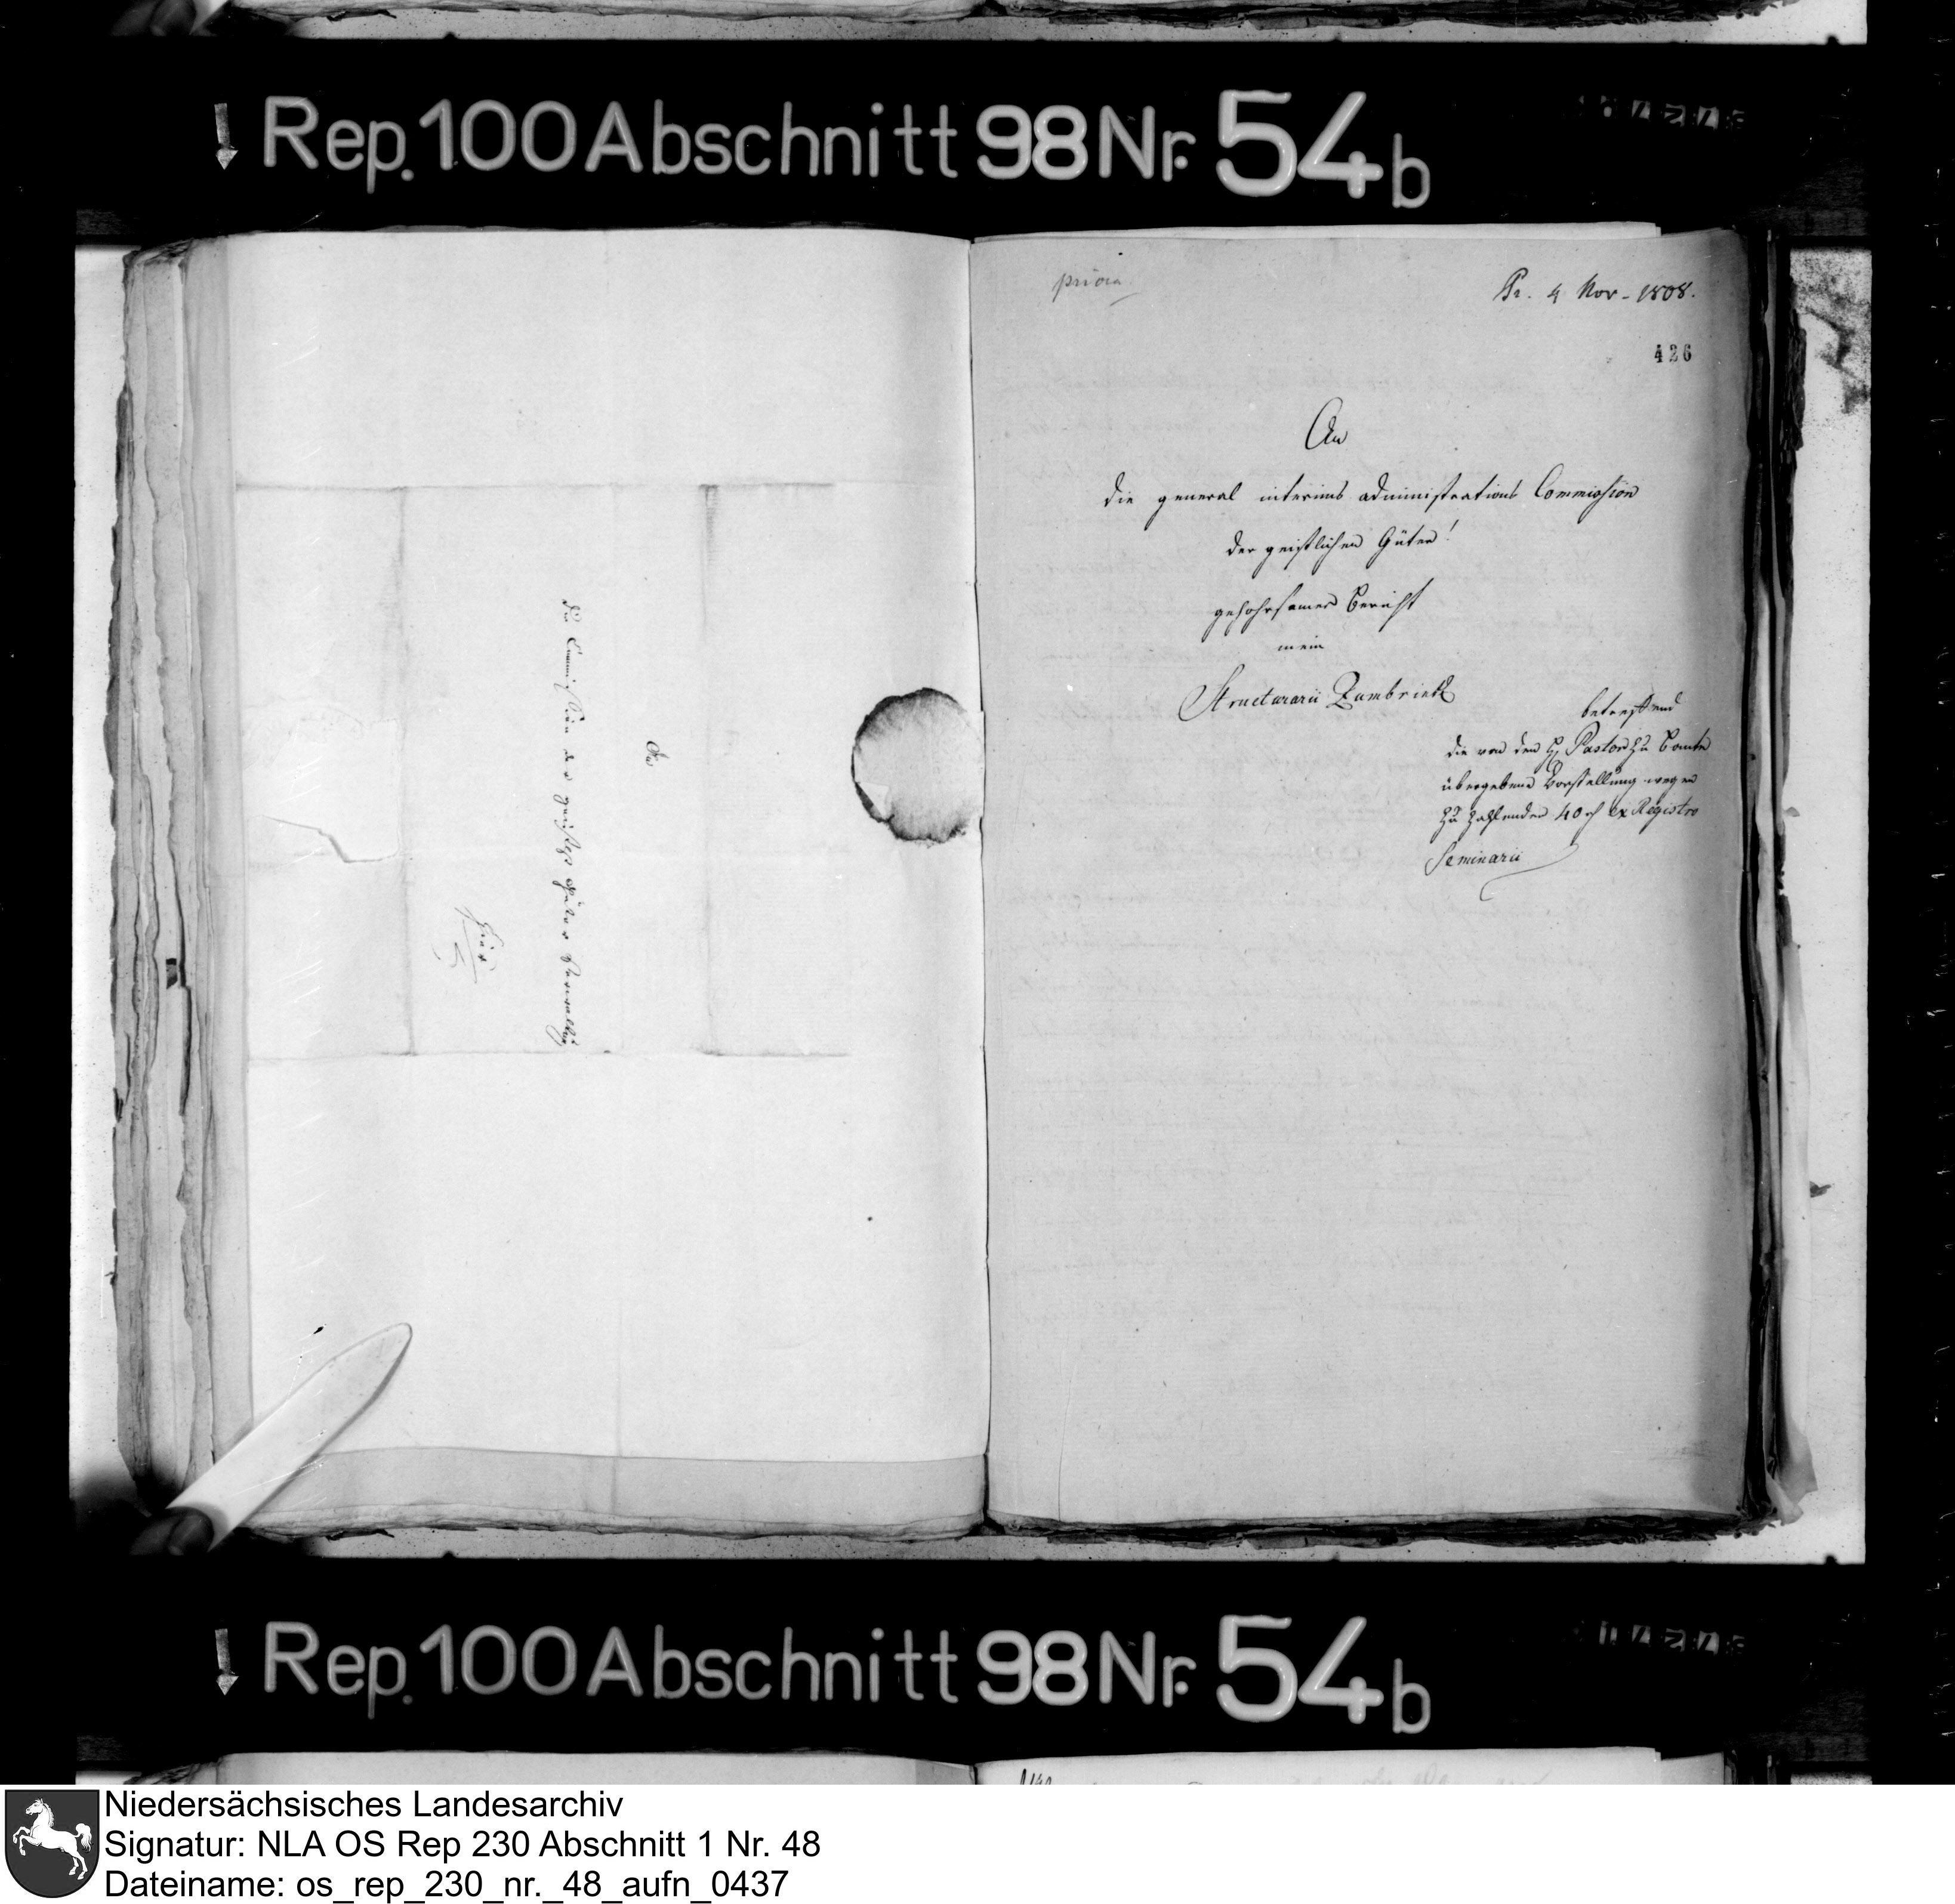 Rep. 100 Abschnitt 98 Nr. 54b
An
die Commission der geistl. Güter Verwaltung
hier
priora
Pr. 4 Nov. 1808.
426
An
die general interims administrations Commission
der geistlichen Güter!
gehohrsamer Bericht
mein
Structurarii Zumbrink
betreffend
die von dem H. Pastor zu
übergebene Vorstellung wegen
zu zahlenden 40 rh ex Registro
Seminarii
Rep. 100 Abschnitt 98 Nr. 54b
Niedersächsisches Landesarchiv
Signatur: NLA OS Rep 230 Abschnitt 1 Nr. 48
Dateiname: os_rep_230_nr._48_aufn_0437